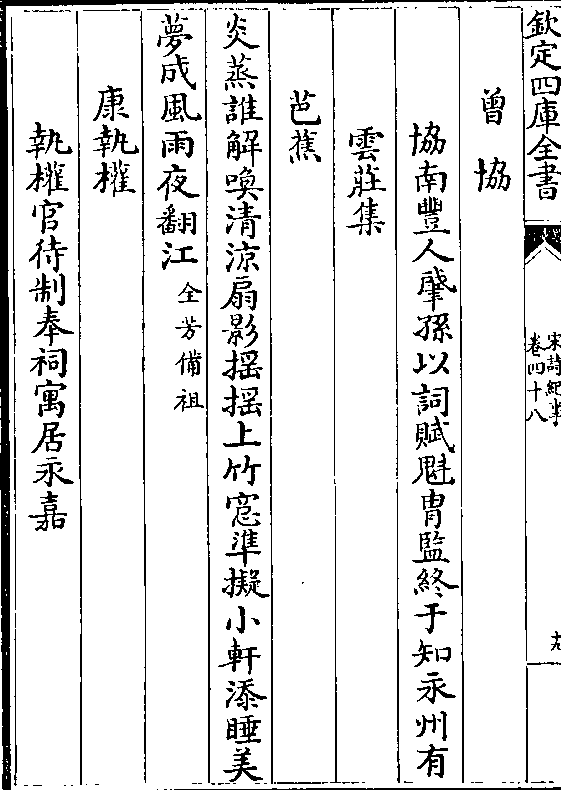 欽定四庫全書
宋詩紀事
卷四十八
九
曾協
協南豐人肇孫以詞賦魁胄監終于知永州有
雲莊集
芭蕉
炎蒸誰解喚清涼扇影揺揺上竹窓準擬小軒添睡美
夢成風雨夜翻江全芳備祖
康執權
執權官待制奉祠寓居永嘉